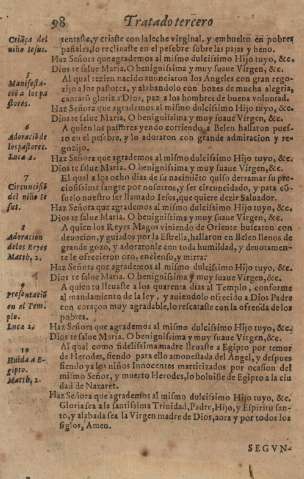 98 Tratado tercero
Criāça del
niño Iesus.
sentaste, y criaste con la leche virginal, y embuelto en pobres
pañales, lo reclinaste en el pesebre sobre las pajas y heno.
Haz Señora que agrademos al mismo dulcissimo Hijo tuyo, &c.
Dios te salue Maria. O benignissima y muy suaue Virgen, &c.
Manifestacio
a los pastores.
Al qual rezien nacido anunciaron los Angeles con gran regozijo
a los pastores, y alabandolo con bozes de mucha alegria,
cantarō gloria a Dios, paz a los hombres de buena voluntad.
Haz Señora que agrademos al mismo dulcissimo Hijo tuyo, &c.
Dios te salue Maria. O benignissima y muy suaue Virgen, &c.
6
Adoraciō de
los pastores.
Luca 2.
A quien los pastores yendo corriendo a Belen hallaron puesto
en el pesebre, y lo adoraron con grande admiracion y regozijo.
Haz Señora que agrademos al mismo dulcissimo Hijo tuyo, &c.
Dios te salue Maria. O benignissima y muy suaue Virgen, &c.
7
Circuncisiō
del niño Iesus.
El qual a los ocho dias de su nacimiēto quiso derramar su preciosissima
sangre por nosotros, y ser circuncidado, y para cōsuelo
nuestro ser llamado Iesus, que quiere dezir Saluador.
Haz Señora que agrademos al mismo dulcissimo Hijo tuyo, &c.
Dios te salue Maria. O benignissima y muy suaue Virgen, &c.
8
Adoracion
de los Reyes
Matth. 2.
A quien los Reyes Magos viniendo de Oriente buscaron con
deuocion, y guiados por la Estrella, hallaron en Belen llenos de
grande gozo, y adorandole con toda humildad, y deuotamente
le ofrecieron oro, encienso, y mirra:
Haz Señora que agrademos al mismo dulcissimo Hijo tuyo, &c.
Dios te salue Maria. O benignissima y muy suaue Virgen, &c.
9
Presentaciō
en el Templo.
Luca 2.
A quien tu lleuaste a los quarenta dias al Templo, conforme
al mandamiento de la ley, y auiendolo ofrecido a Dios Padre
con coraçon muy agradable, lo rescataste con la ofrenda de los
pobres.
Haz Señora que agrademos al mismo dulcissimo Hijo tuyo, &c.
Dios te salue Maria. O benignissima y muy suaue Virgen, &c.
10
Huida a Egipto.
Matth. 2.
Al qual como fidelissima madre lleuaste a Egipto por temor
de Herodes, siendo para ello amonestada del Angel, y despues
siendo ya los niños Innocentes martirizados por ocasion del
mismo Señor, y muerto Herodes, lo boluiste de Egipto a la ciudad
de Nazaret.
Haz Señora que agrademos al mismo dulcissimo Hijo tuyo, &c.
Gloria sea a la santissima Trinidad, Padre, Hijo, y Espiritu santo,
y alabada sea la Virgen madre de Dios, aora y por todos los
siglos, Amen.
SEGVN-